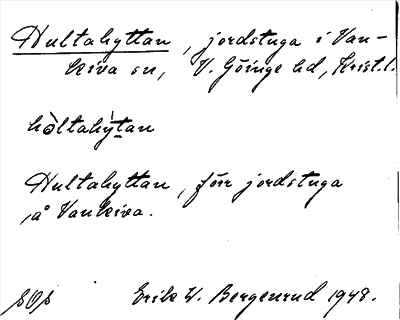 Hultahyttan, jordstuga i Van-
keiva sn, V. Göinge hd, Krist. l.
hòltahy̍tan
Hultahyttan, förr jordstuga
å Vankeiva.
SOS Erik W. Bergenrud 1948.